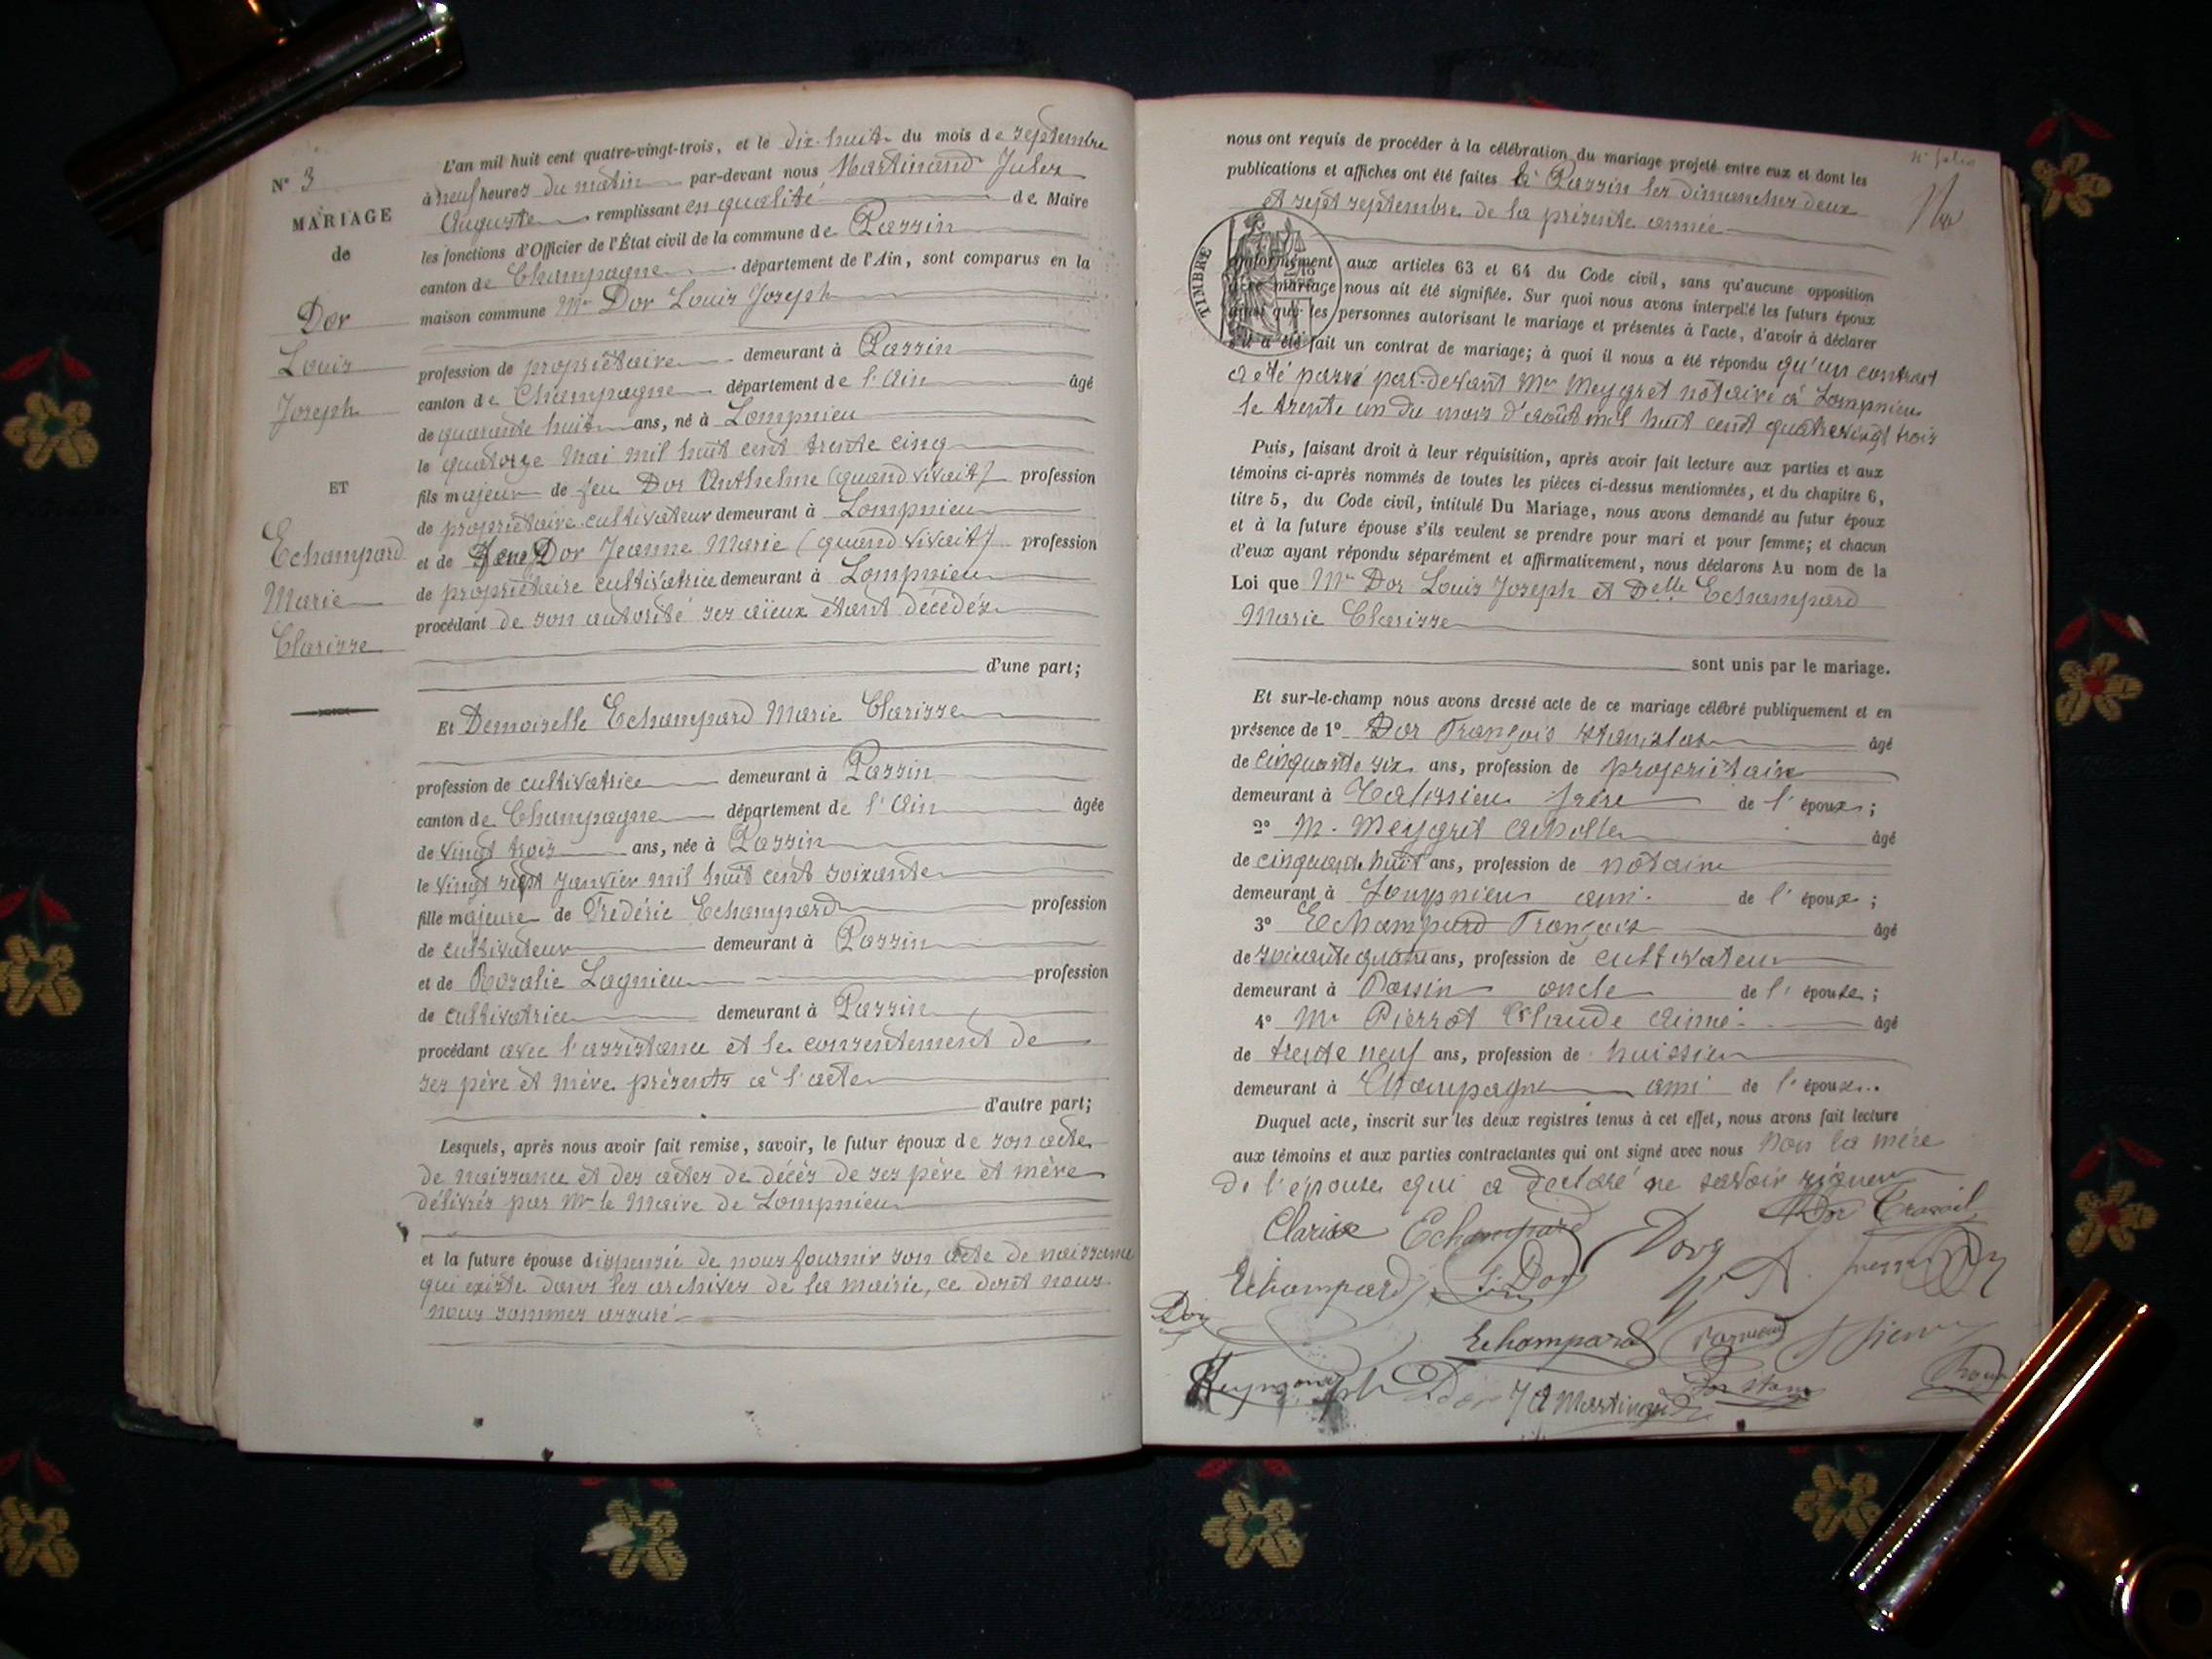 N° 3
MARIAGE
de
Dor
Louis
Joseph
ET
Echampard
Marie
Clarisse
L'an mil huit cent quatre-vingt-trois, et le dix-huit du mois de septembre
à neuf heures du matin par-devant nous Martinand Jules
Auguste remplissant en qualité de Maire
les fonctions d'Officier de l'État civil de la commune de Passin
canton de Champagne département de l'Ain, sont comparus en la
maison commune Mr Dor Louis Joseph
profession de propriétaire demeurant à Passin
canton de Champagne département de l'Ain âgé
de quarante huit ans, né à Lompnieu
le quatorze Mai mil huit cent trente cinq
fils majeur de feu Dor Anthelme (quand vivait) profession
de propriétaire cultivateur demeurant à Lompnieu
et de feue Dor Jeanne Marie (quand vivait) profession
de propriétaire cultivatrice demeurant à Lompnieu
procédant de son autorité ses aïeux étant décédés
d'une part;
Et Demoiselle Echampard Marie Clarisse
profession de cultivatrice demeurant à Passin
canton de Champagne département de l'Ain âgée
de vingt trois ans, née à Passin
le vingt sept janvier mil huit cent soixante
fille majeure de Frédéric Echampard profession
de cultivateur demeurant à Passin
et de Rosalie Lagnieu profession
de cultivatrice demeurant à Passin
procédant avec l'assistance et le consentement de
ses père et mère présents à l'acte
d'autre part;
Lesquels, après nous avoir fait remise, savoir, le futur époux de son acte
de naissance et des actes de décès de ses père et mère
délivrés par Mr le Maire de Lompnieu
et la future épouse dispensée de nous fournir son acte de naissance
qui existe dans les archives de la mairie, ce dont nous
nous sommes assuré
nous ont requis de procéder à la célébration du mariage projeté entre eux et dont les
publications et affiches ont été faites à Passin les dimanches deux
et sept septembre de la présente année
TIMBRE
conformément aux articles 63 et 64 du Code civil, sans qu'aucune opposition
mariage nous ait été signifiée. Sur quoi nous avons interpellé les futurs époux
ainsi que les personnes autorisant le mariage et présentes à l'acte, d'avoir à déclarer
s'il a été fait un contrat de mariage; à quoi il nous a été répondu qu'un contrat
a été passé par-devant Me Meygret notaire à Lompnieu
le trente un du mois d'août mil huit cent quatrevingt trois
Puis, faisant droit à leur réquisition, après avoir fait lecture aux parties et aux
témoins ci-après nommés de toutes les pièces ci-dessus mentionnées, et du chapitre 6,
titre 5, du Code civil, intitulé Du Mariage, nous avons demandé au futur époux
et à la future épouse s'ils veulent se prendre pour mari et pour femme; et chacun
d'eux ayant répondu séparément et affirmativement, nous déclarons Au nom de la
Loi que Mr Dor Louis Joseph et Delle Echampard
Marie Clarisse
sont unis par le mariage.
Et sur-le-champ nous avons dressé acte de ce mariage célébré publiquement et en
présence de 1° Dor François Stanislas âgé
de cinquante six ans, profession de propriétaire
demeurant à Talissieu frère de l'époux;
2° M. Meygret Achille âgé
de cinquante huit ans, profession de notaire
demeurant à Lompnieu ami de l'époux;
3° Echampard François âgé
de soixante quatre ans, profession de cultivateur
demeurant à Passin oncle de l'épouse;
4° Mr Pierrot Claude Aimé âgé
de trente neuf ans, profession de huissier
demeurant à Champagne ami de l'époux..
Duquel acte, inscrit sur les deux registres tenus à cet effet, nous avons fait lecture
aux témoins et aux parties contractantes qui ont signé avec nous Non la mère
de l'épouse qui a déclaré ne savoir signer
Clarisse Echampard Dor
Echampard Dor
Dor
Echampard
Dor J A Martinand Dor Stanis